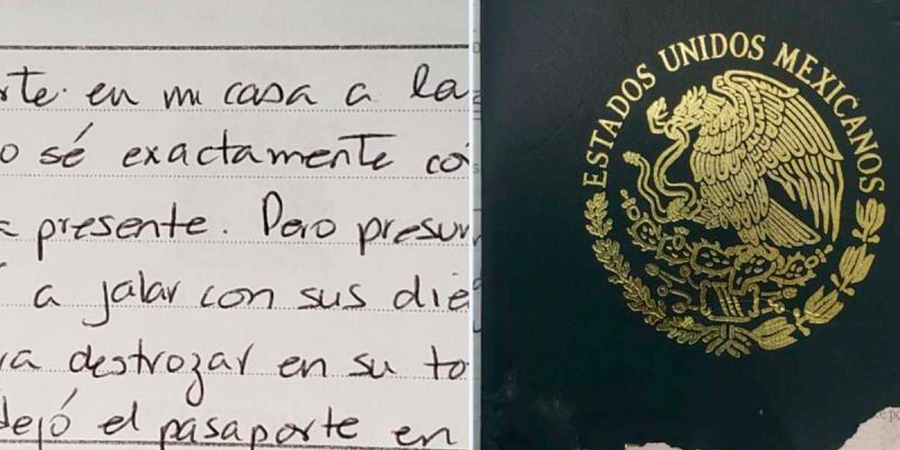 rte. en mi casa a la
o sé exactamente có
presente. Pero presun
a jalar con sus die
ra destrozar en su to
dejó el pasaporte en
ESTADOS UNIDOS MEXICANOS